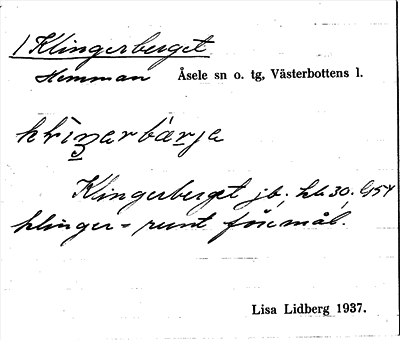 1 Klingerberget
Hemman Åsele sn o. tg, Västerbottens l.
klinger-runt föremål.
Klingerberget jb; hh 30;
Lisa Lidberg 1937.